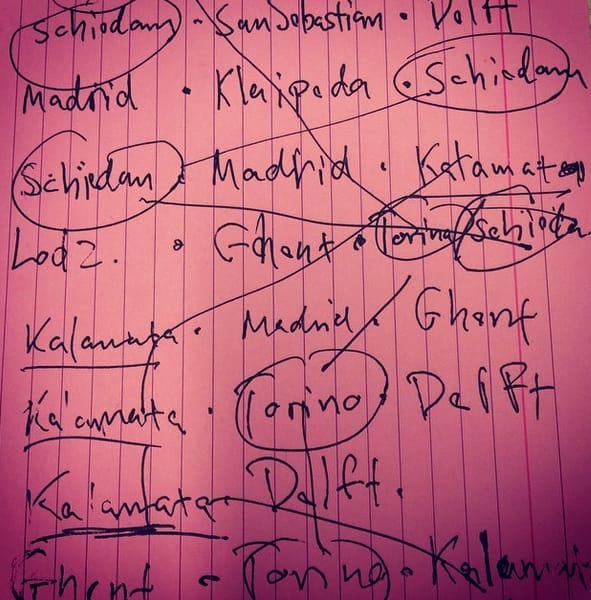 Schiedam • San Sebastian • Delft
Madrid • Klaipeda • Schiedam
Schiedam • Madrid • Kalamata
Lodz. • Ghent • Torino/Schieda
Kalamata • Madrid • Ghent
Kalamata • Torino • Delft
Kalamata Delft.
Ghent • Torino • Kalama